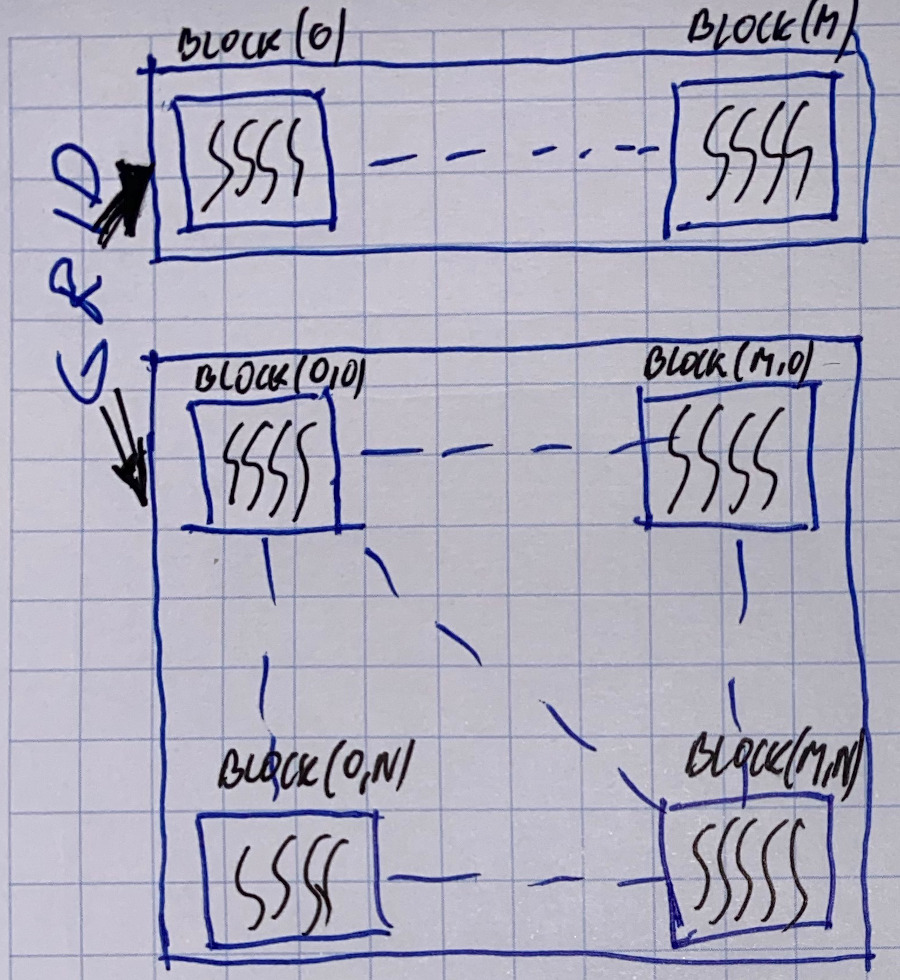 BLOCK(0)
BLOCK(M)
GRID
BLOCK(0,0)
BLOCK(M,0)
BLOCK(0,N)
BLOCK(M,N)